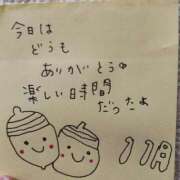 今日は
どうも
ありがとう
楽しい時間
だったよ
11月